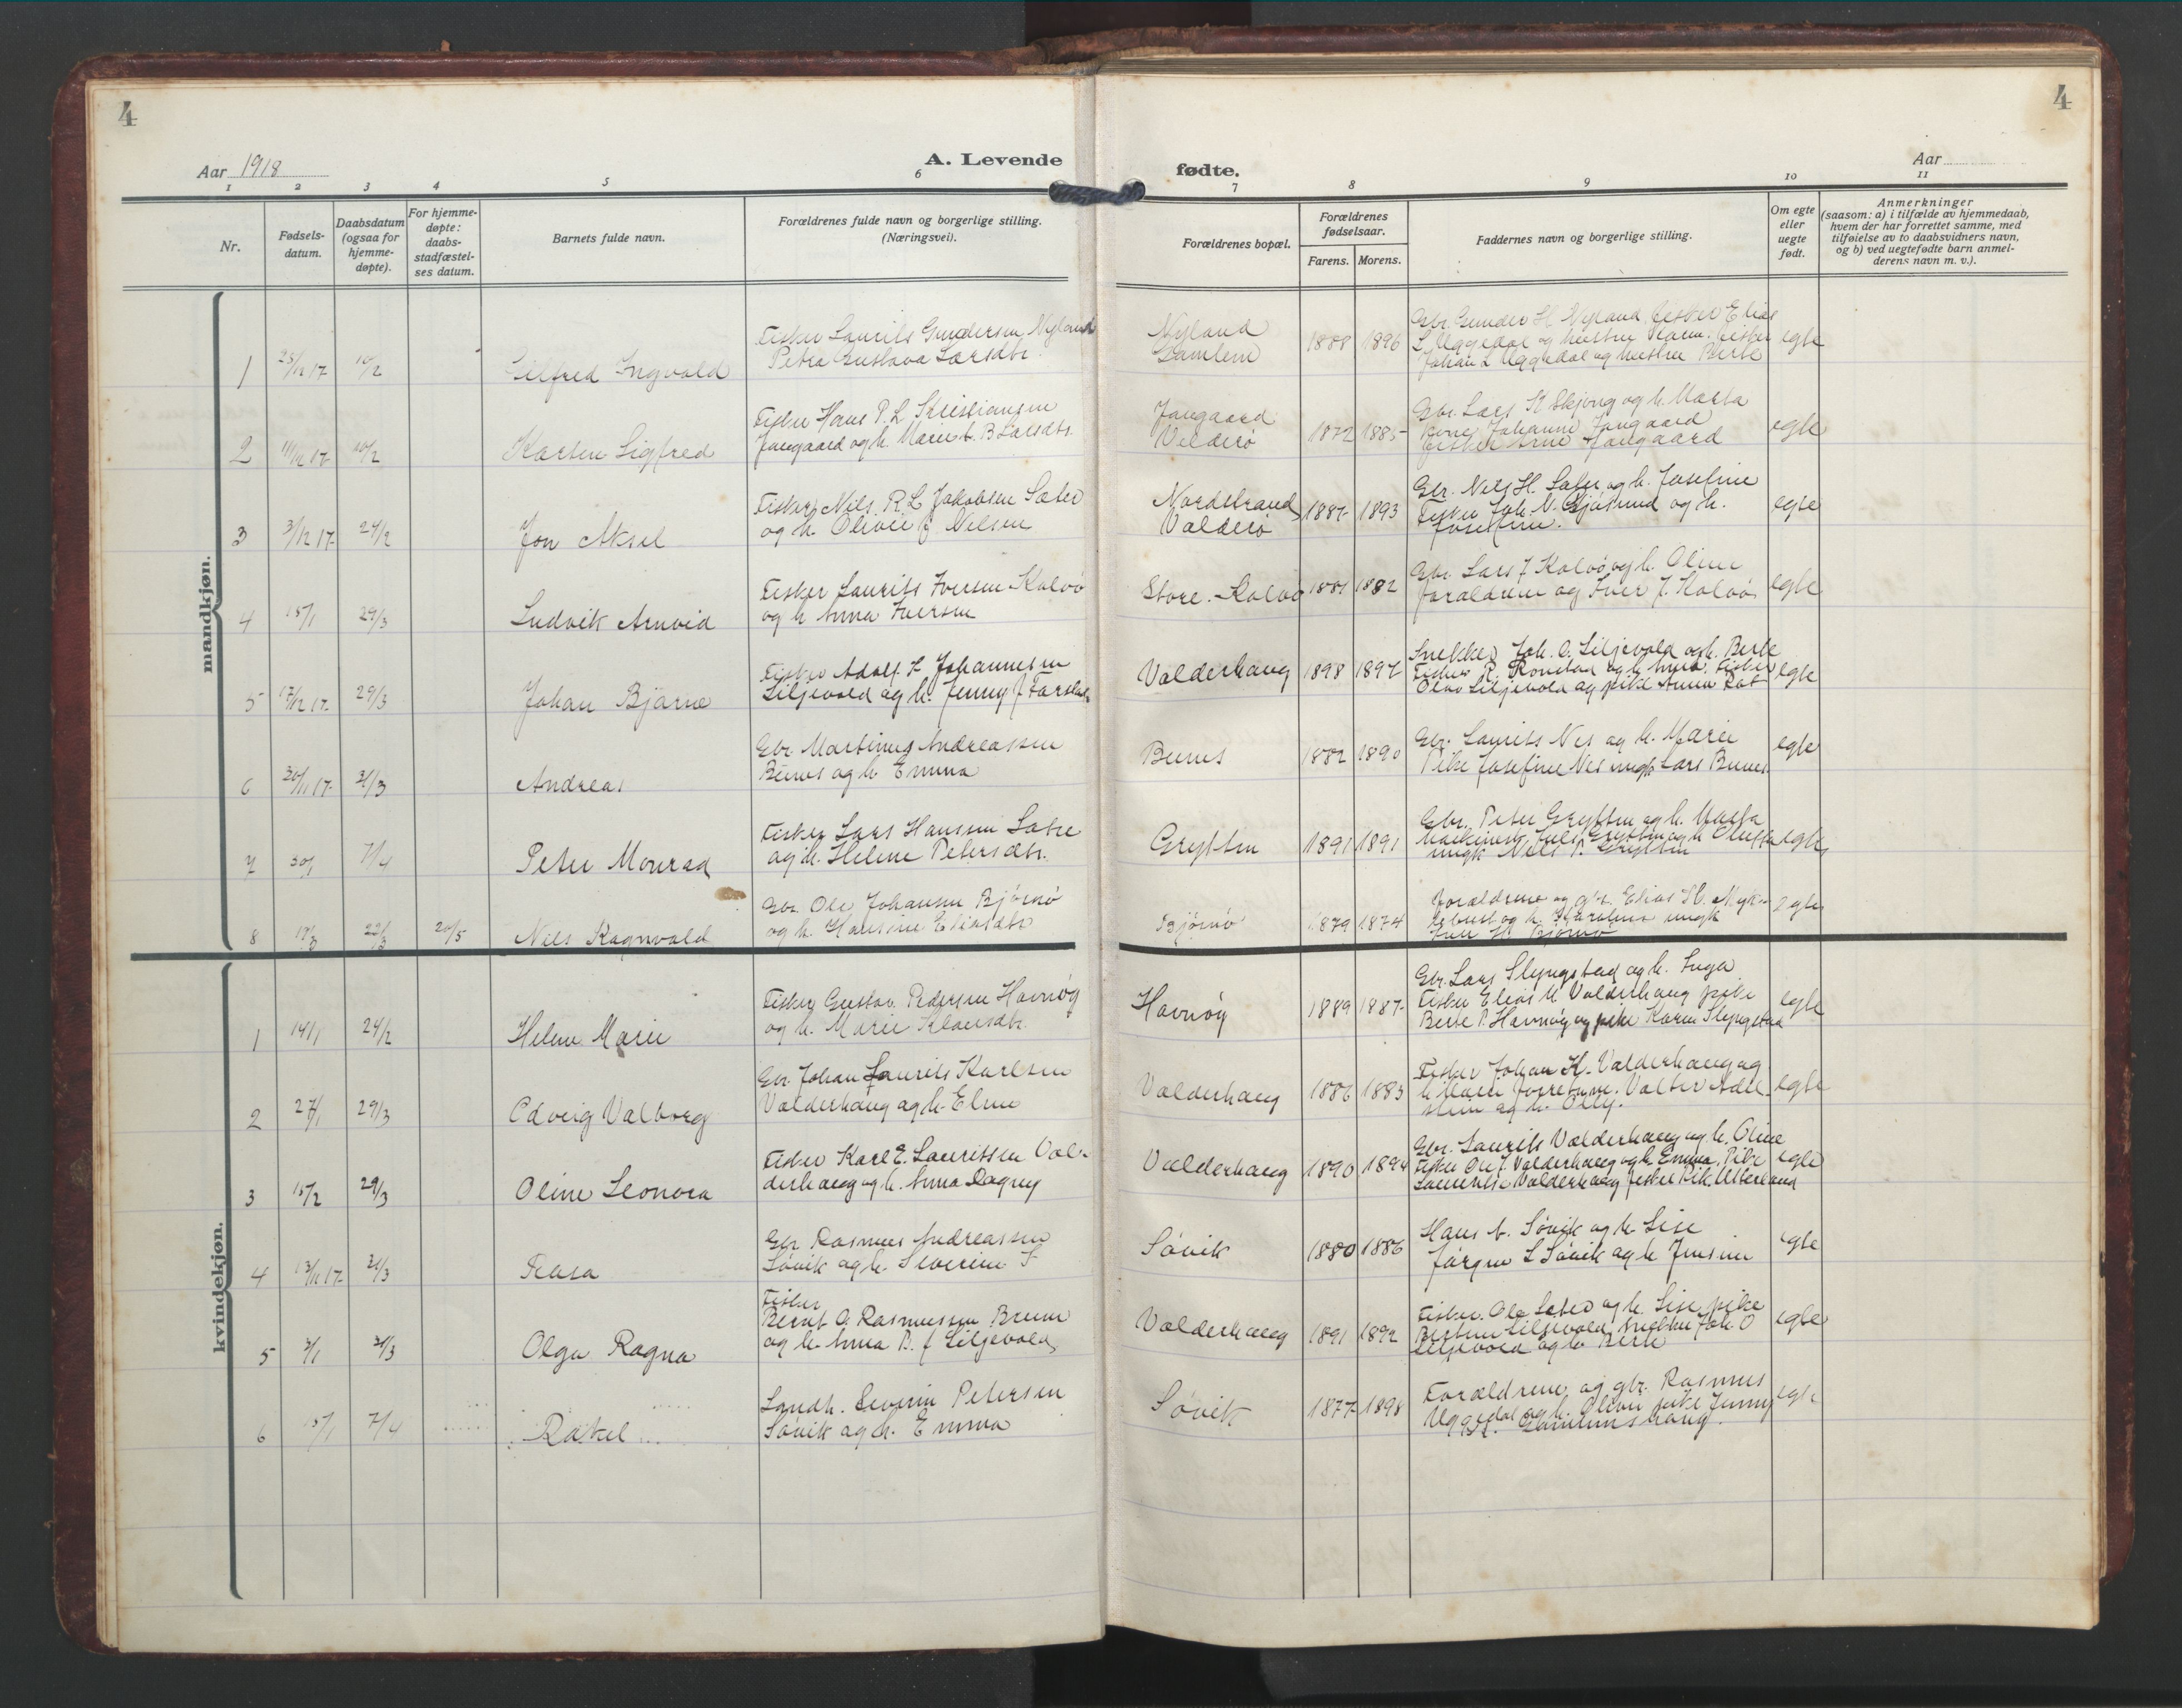 4
4
Aar 1918
A. Levende
fødte.
Aar
1 2 3 4 5 6 7 8 9 10 11
Nr.
Fødsels-
datum.
Daabsdatum
(ogsaa for
hjemme-
døpte).
For hjemme-
døpte:
daabs-
stadfæstel-
ses datum.
Barnets fulde navn.
Forældrenes fulde navn og borgerlige stilling.
(Næringsvei).
Forældrenes bopæl.
Forældrenes
fødselsaar.
Farens. Morens.
Faddernes navn og borgerlige stilling.
Om egte
eller
uegte
født.
Anmerkninger
(saasom: a) i tilfælde av hjemmedaab,
hvem der har forrettet samme, med
tilføielse av to daabsvidners navn,
og b) ved uegtefødte barn anmel-
derens navn m. v.).
mandkjøn.
Fisker Laurits Gundersen Nyland
Petra Gustava Larsdtr.
1 10/2 Gilfred Ingvald
Nyland
1888 1896
Gbr. Gunder H Nyland, fisker Elias
L Uggedal og hustru Karen. fisker
Johan L Uggedal og hustru Berte
egte
Fisker Hans P. L Kristiansen
Jangaard og h. Marie B Larsdtr.
2 11/12 17 10/2 Karsten Sigfred
Jangaard
Valderø
1872 1885
Gbr. Lars K Skjong og h. Marta
Kone Johanne Jangaard
fisker Arne Jangaard
egte
Fisker Nils R. L Jakobsen Sæter
og h. Olivie J Nilsen
3 3/12 17 24/2 Jon Aksel
Nordstrand
Valderø
1887 1893
Gbr. Nils H. Sæter og h. Josefine
Fisker Joh. N. Gjøsund og h.
Josefine.
egte
Fisker Laurits Iversen Kalvø
og h Anna Iversen
4 15/1 29/3 Ludvik Arnvid
Store-Kalvø
1881 1882
Gbr. Lars J Kalvø og h. Oline
forældrene og Iver J. Kalvø
egte
Fisker Adolf L Johannesen
Liljevold og h. Jenny J
5 17/12 17 29/3 Johan Bjarne
Valderhaug
1898 1897
Snekker Joh. O. Liljevold og h. Berte
Fisker R. Ronstad og h. Anna. Fisker
Olav Liljevold og pike Anna
egte
Gbr. Martinus Andreassen
Burs og h. Emma
6 30/11 17 31/3 Andreas
1882 1890
Gbr. Laurits Nes og h. Marie
Pike Josefine Nes ungk Lars
egte
Fisker Lars Hanssen Sætre
og h. Helene Petersdtr.
7 30/1 7/4 Peter Monrad
Grytten
1891 1891
Gbr. Peter Grytten og h. Marta
ungk Nils P. Grytten
egte
Gbr. Ole Johansen Bjørnø
og h. Hansine Eliasdtr
8 19/3 22/3 20/5 Nils Ragnvald
Bjørnø
1879 1874
Forældrene og gbr. Elias H. Myk-
lebust og h. Karoline ungk
Bjørnø
egte
kvindekjøn.
Fisker Gustav Pedersen Havnøy
og h. Marie Klausdtr.
1 14/1 24/2 Helene Marie
Havnøy
1889 1887
Gbr. Lars Slyngstad og h. Inga
Fisker Elias M Valderhaug pike
Berte P. Havnøy og pike Karen Slyngstad
egte
Gbr. Johan Laurits Karlsen
Valderhaug og h. Eline
2 27/1 29/3 Odveig Valborg
Valderhaug
1886 1883
Fisker Johan K. Valderhaug og
h Marie
og h. Olly.
egte
Fisker Karl E. Lauritssen Val-
derhaug og h. Anna Dagny
3 15/2 29/3 Oline Leonora
Valderhaug
1890 1894
Gbr. Laurits Valderhaug og h. Oline
Fisker Ole J. Valderhaug og h. Emma. Pike
Laurentse Valderhaug fisker Rik. Utterland
egte
Gbr Rasmus Andreassen
Søvik og h. Severine S
4 13/11 17 31/3 Rasa
Søvik
1880 1886
Hans A. Søvik og h. Lise
Jørgen L Søvik og h Jensine
egte
Fisker
Bernt O. Rasmussen Breem
og h. Anna B. f Liljevold
5 3/1 31/3 Olga Ragna
Valderhaug
1891 1892
Fisker Ole Sæter og h. Lise pike
Bertine Liljevold, snekker Joh. O
Liljevold og h Berte
egte
Landh. Severin Petersen
Søvik og h. Emma
6 15/1 7/4 Rakel
Søvik
1877 1898
Forældrene og gbr. Rasmus
Uggedal og h. Oline pike Jenny
egte